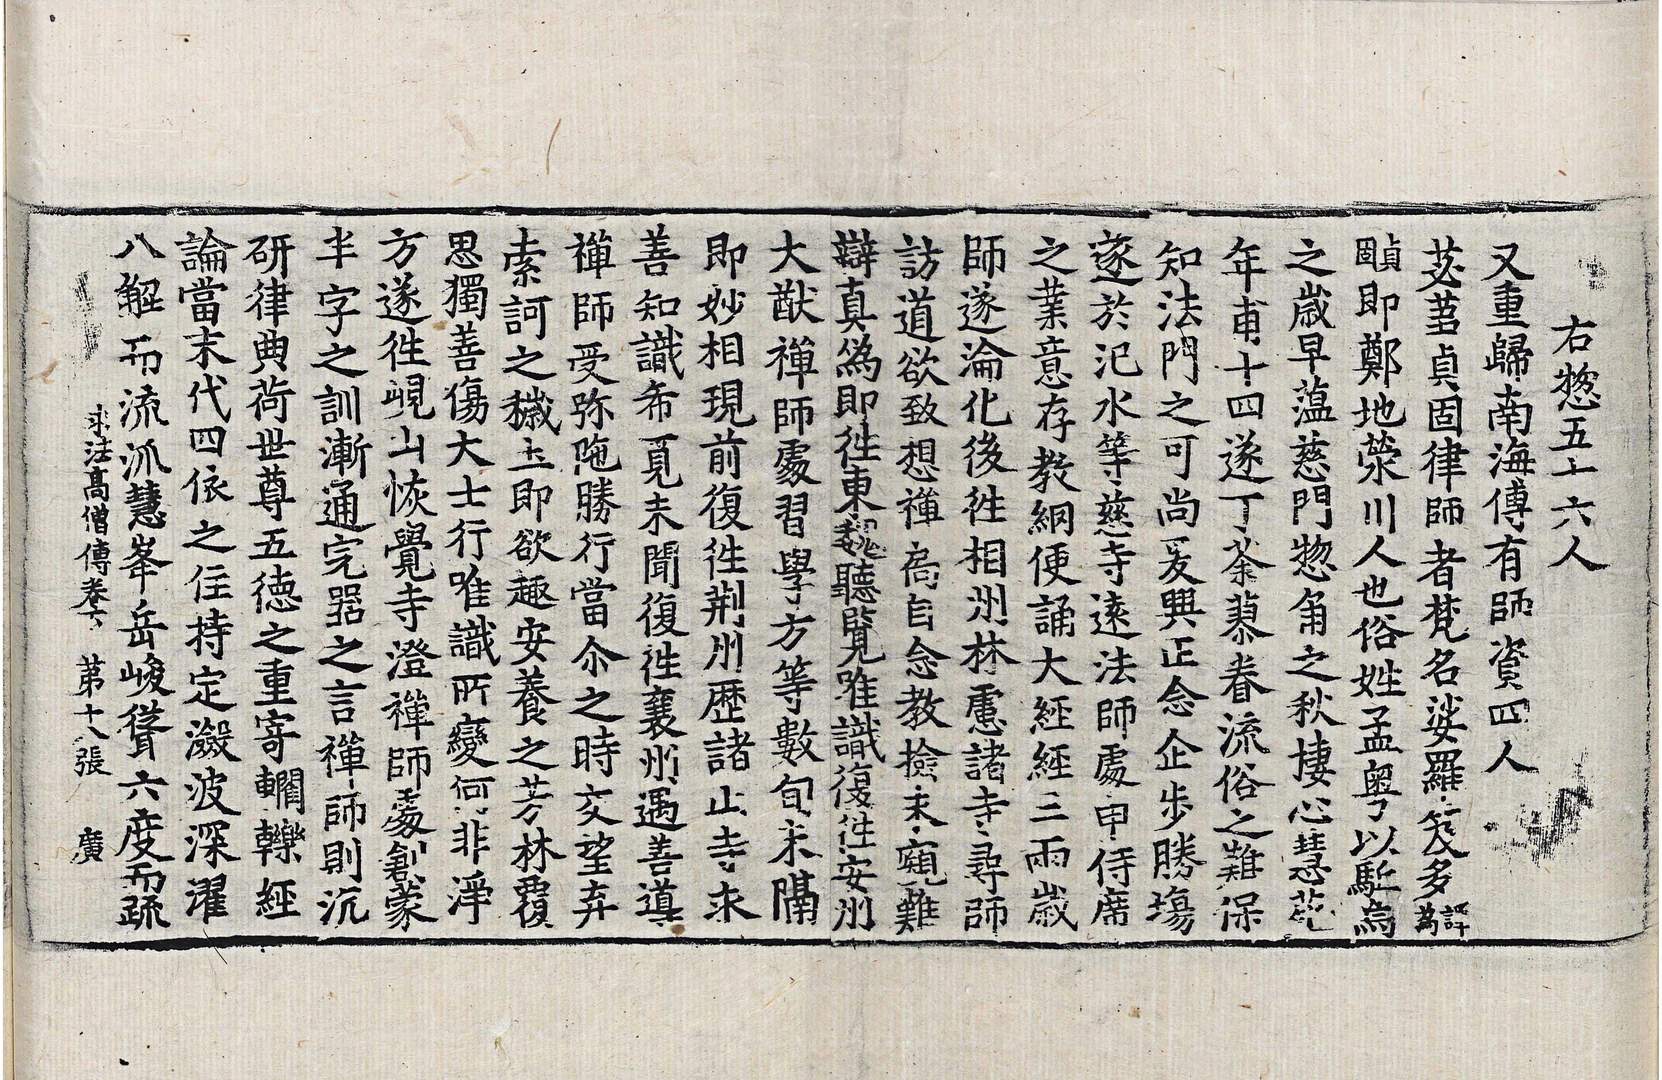 右惣五十六人
又重歸南海傳有師資四人
苾蒭貞固律師者梵名娑羅笈多譯為
貞固即鄭地滎川人也俗姓孟粤以駈烏
之歳早蘊慈門惣角之秋棲心慧苑
年甫十四遂丁荼蓼眷流俗之難保
知法門之可尚爰興正念企步勝場
遂於氾水等慈寺遠法師處申侍席
之業意存教網便誦大經經三兩歳
師遂淪化後徃相州林慮諸寺尋師
訪道欲致想禪扃自念教撿未窺難
辯真偽即徃東魏聽覧唯識復徃安州
大猷禪師處習學方等數旬未隔
即妙相現前復徃荆州歴諸山寺求
善知識希覓未聞復徃襄州遇善導
禪師受弥陁勝行當尒之時交望弃
索訶之穢土即欲趣安養之芳林覆
思獨善傷大士行唯識所變何非淨
方遂徃峴山恢覺寺澄禪師處創蒙
半字之訓漸通完器之言禪師則沉
研律典荷世尊五德之重寄轥轢經
論當末代四依之住持定瀲波深濯
八解而流派慧峯岳峻聳六度而疏
求法高僧傳卷下 第十八張 廣